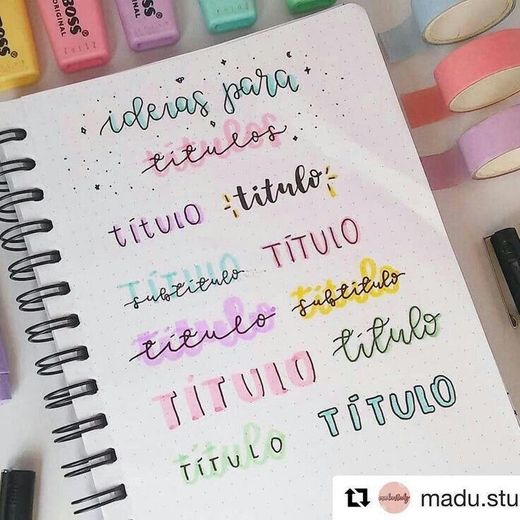 BOSS
ORIGINAL
BOSS
ORIGINAL
ideias para
títulos
títulos
TÍTULO
título
TÍTULO
subtítulo
TÍTULO
título
subtítulo
título
título
título
TÍTULO
TÍTULO
título
TÍTULO
madu.stu